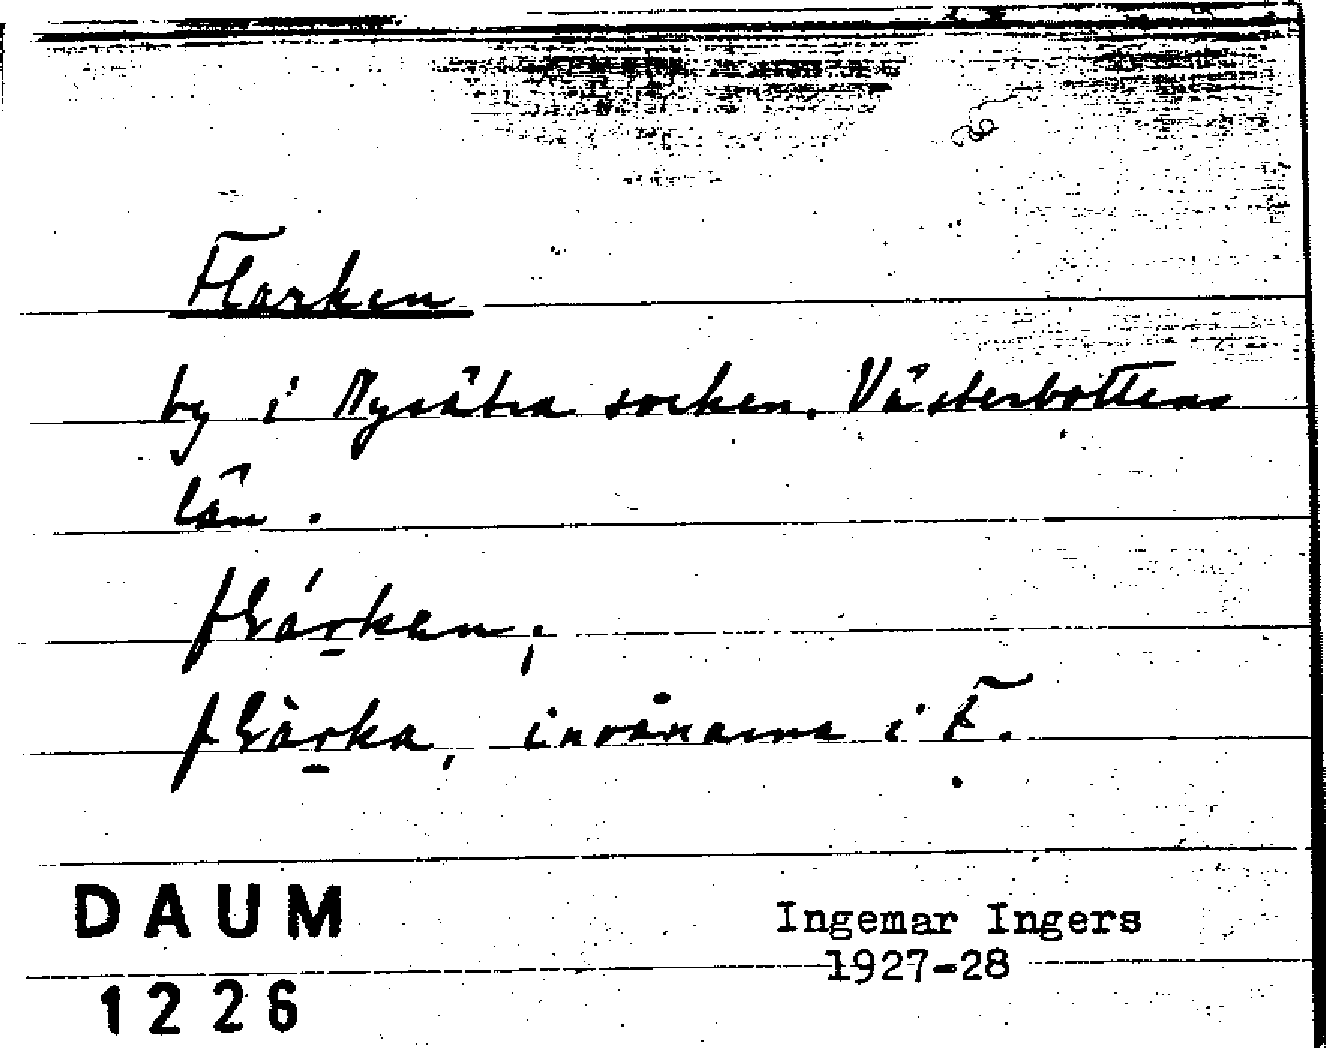 Flarken
by i Nysätra socken, Västerbottens
län.
flárken,
flàrka, invånarna i F.
DAUM
1226
Ingemar Ingers
1927-28